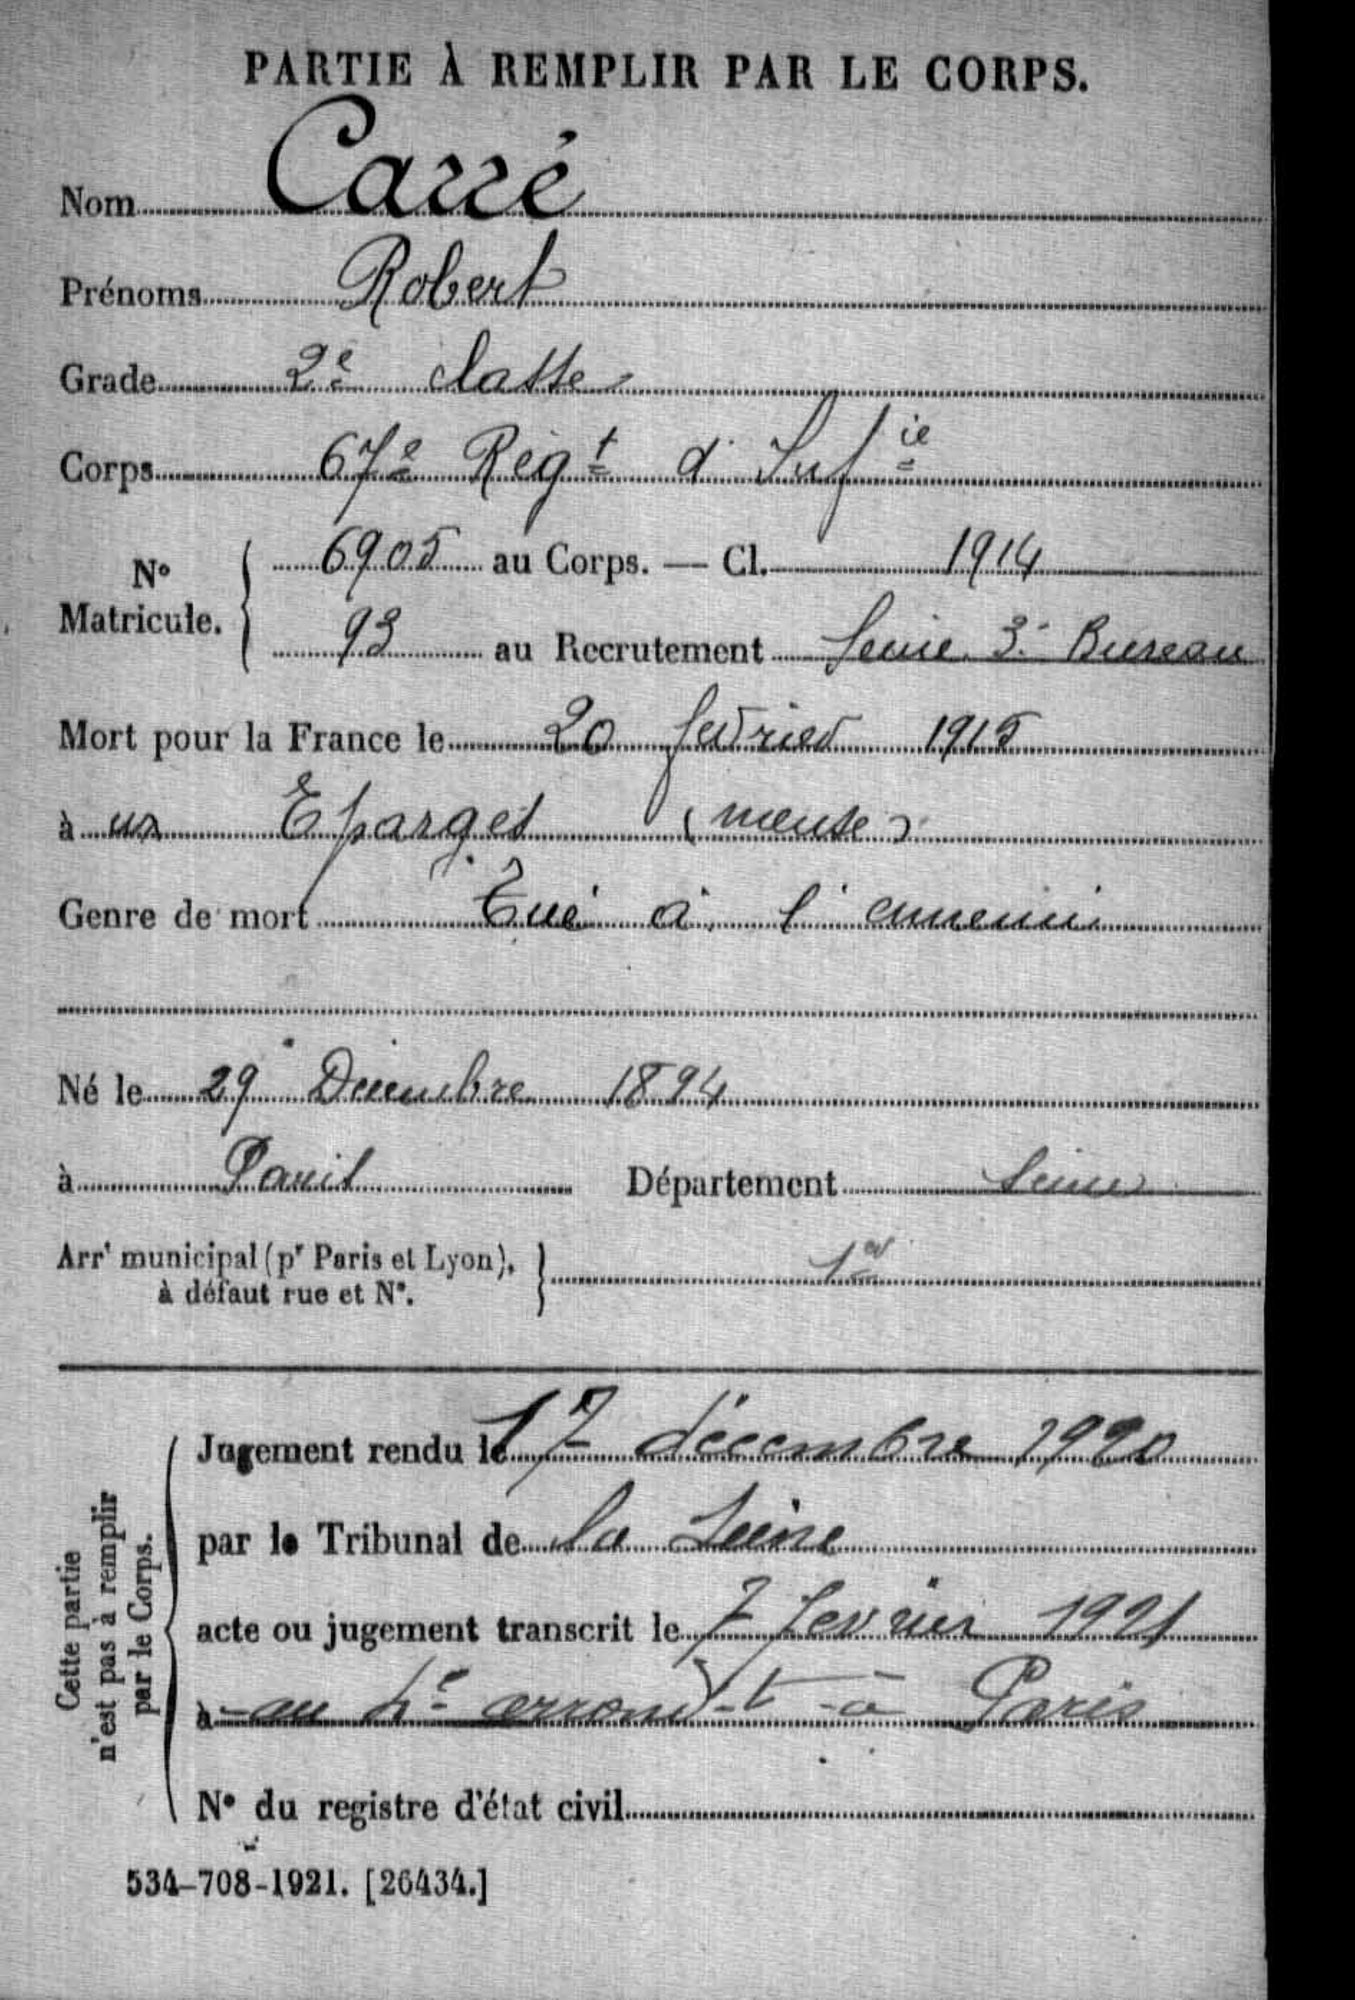 PARTIE À REMPLIR PAR LE CORPS.
Nom Carré
Prénoms Robert
Grade 2e classe
Corps 67e Régt d'Infie
N° Matricule. 6905 au Corps. — Cl. 1914
93 au Recrutement Seine 3e Bureau
Mort pour la France le 20 février 1915
à Eparges (meuse)
Genre de mort Tué à l'ennemi
Né le 29 Décembre 1894
à Paris Département Seine
Arrt municipal (pr Paris et Lyon), 1er
à défaut rue et N°.
Cette partie
n'est pas à remplir
par le Corps.
Jugement rendu le 17 décembre 1920
par le Tribunal de la Seine
acte ou jugement transcrit le 7 fevrier 1921
à au 4e arrondt à Paris
N° du registre d'état civil
534-708-1921. [26434.]